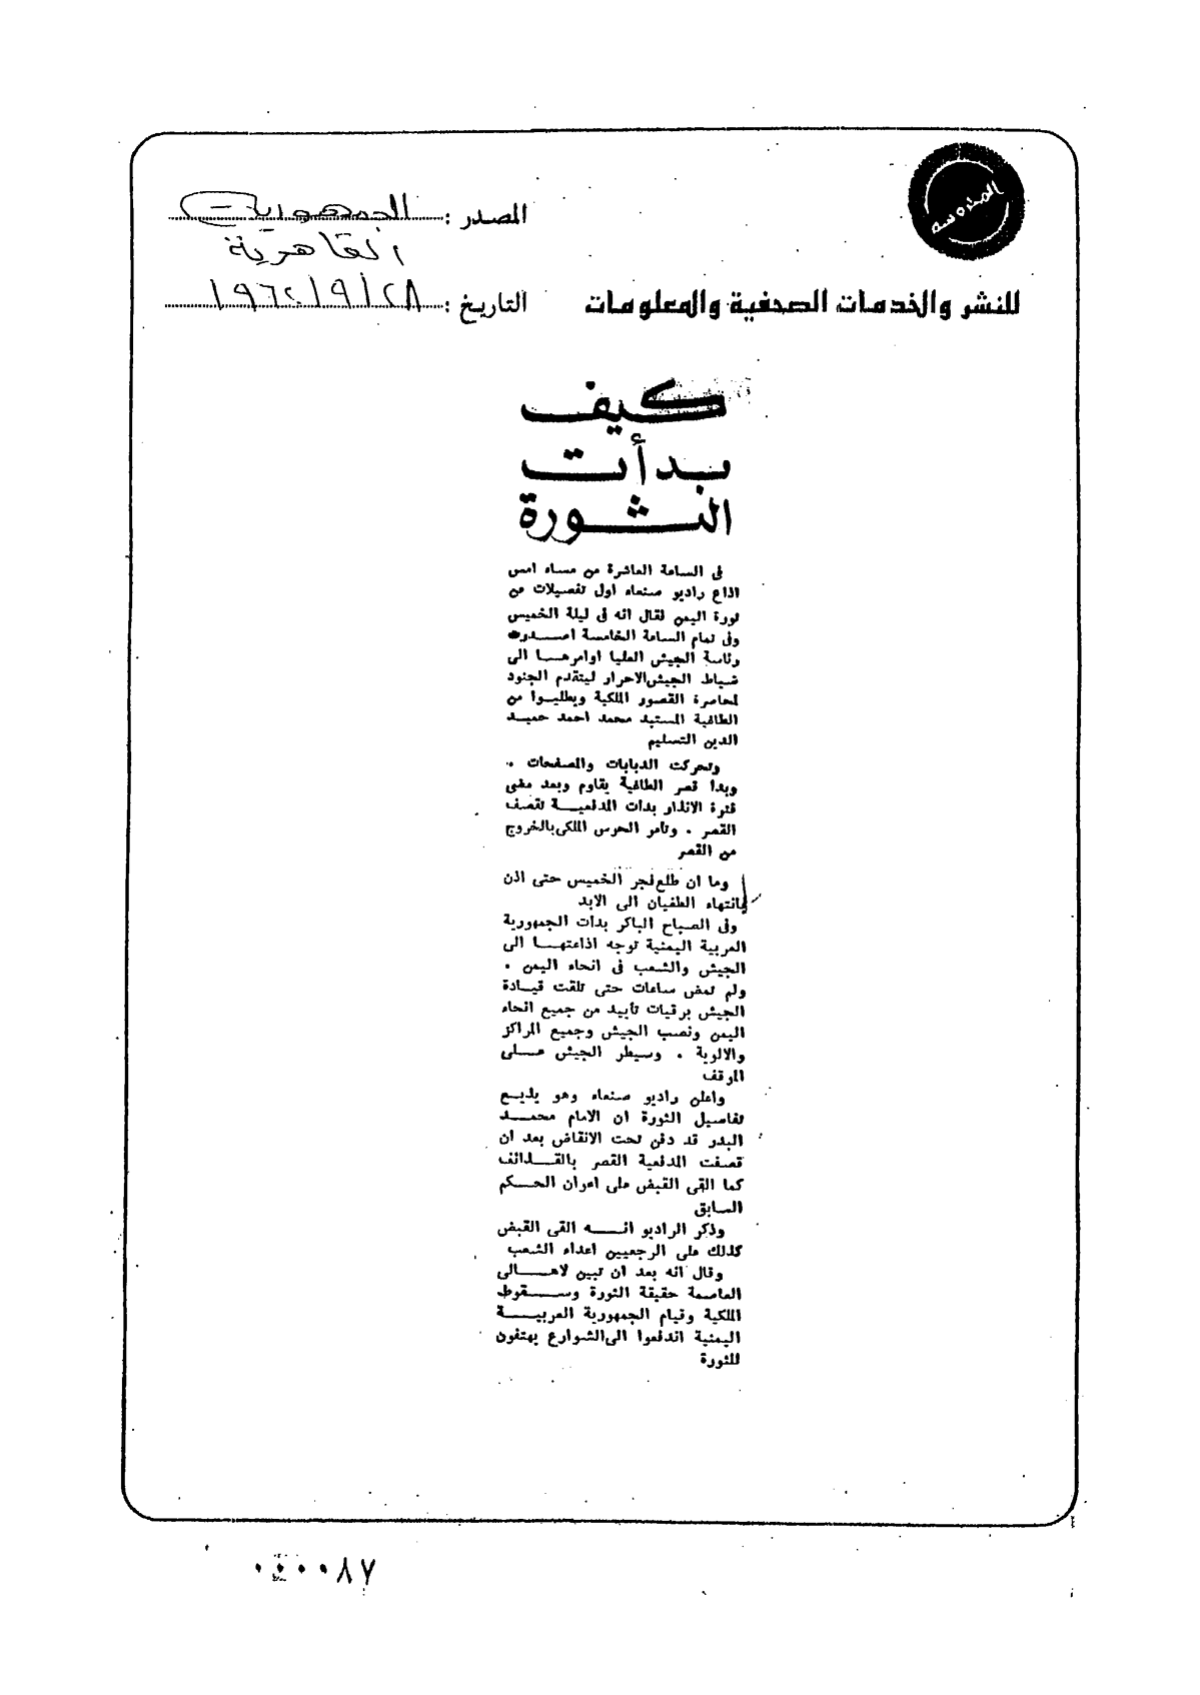 المحروسة
المصدر : الجمهورية
القاهرية
للنشر والخدمات الصحفية والمعلومات
التاريخ : ٢٨/٩/١٩٦٢
كيف
بدأت
الثورة
فى الساعة العاشرة من مساء امس
اذاع راديو صنعاء اول تفصيلات من
ثورة اليمن فقال انه فى ليلة الخميس
وفى تمام الساعة الخامسة اصدرت
رئاسة الجيش العليا اوامرها الى
ضباط الجيش الاحرار ليتقدم الجنود
لمحاصرة القصور الملكية ويطلبوا من
الطاغية المستبد محمد احمد حميد
الدين التسليم
وتحركت الدبابات والمصفحات .
وبدا قصر الطاغية يقاوم وبعد مضى
فترة الانذار بدات المدفعية تقصف
القصر . وتامر الحرس الملكى بالخروج
من القصر
وما ان طلع فجر الخميس حتى اذن
بانتهاء الطغيان الى الابد
وفى الصباح الباكر بدات الجمهورية
العربية اليمنية توجه اذاعتها الى
الجيش والشعب فى انحاء اليمن .
ولم تمض ساعات حتى تلقت قيادة
الجيش برقيات تأييد من جميع انحاء
اليمن ونصب الجيش وجميع المراكز
والالوية . وسيطر الجيش على
الموقف
واعلن راديو صنعاء وهو يذيع
تفاصيل الثورة ان الامام محمد
البدر قد دفن تحت الانقاض بعد ان
قصفت المدفعية القصر بالقذائف
كما القى القبض على اعوان الحكم
السابق
وذكر الراديو انه القى القبض
كذلك على الرجعيين اعداء الشعب
وقال انه بعد ان تبين لاهالى
العاصمة حقيقة الثورة وسقوط
الملكية وقيام الجمهورية العربية
اليمنية اندفعوا الى الشوارع يهتفون
للثورة
٠٤٠٠٨٧